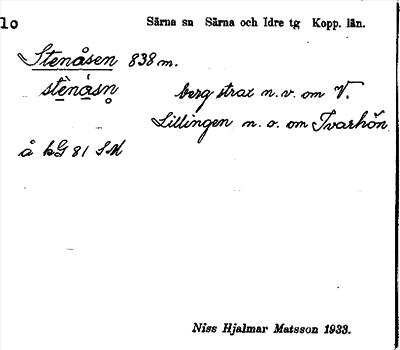 lo Särna sn Särna och Idre tg Kopp. län.
Stenåsen 838 m.
stènåsn̥ berg strax n.v. om V.
Lillingen n.o. om Ivarhån
å kG 81 SM
Niss Hjalmar Matsson 1933.